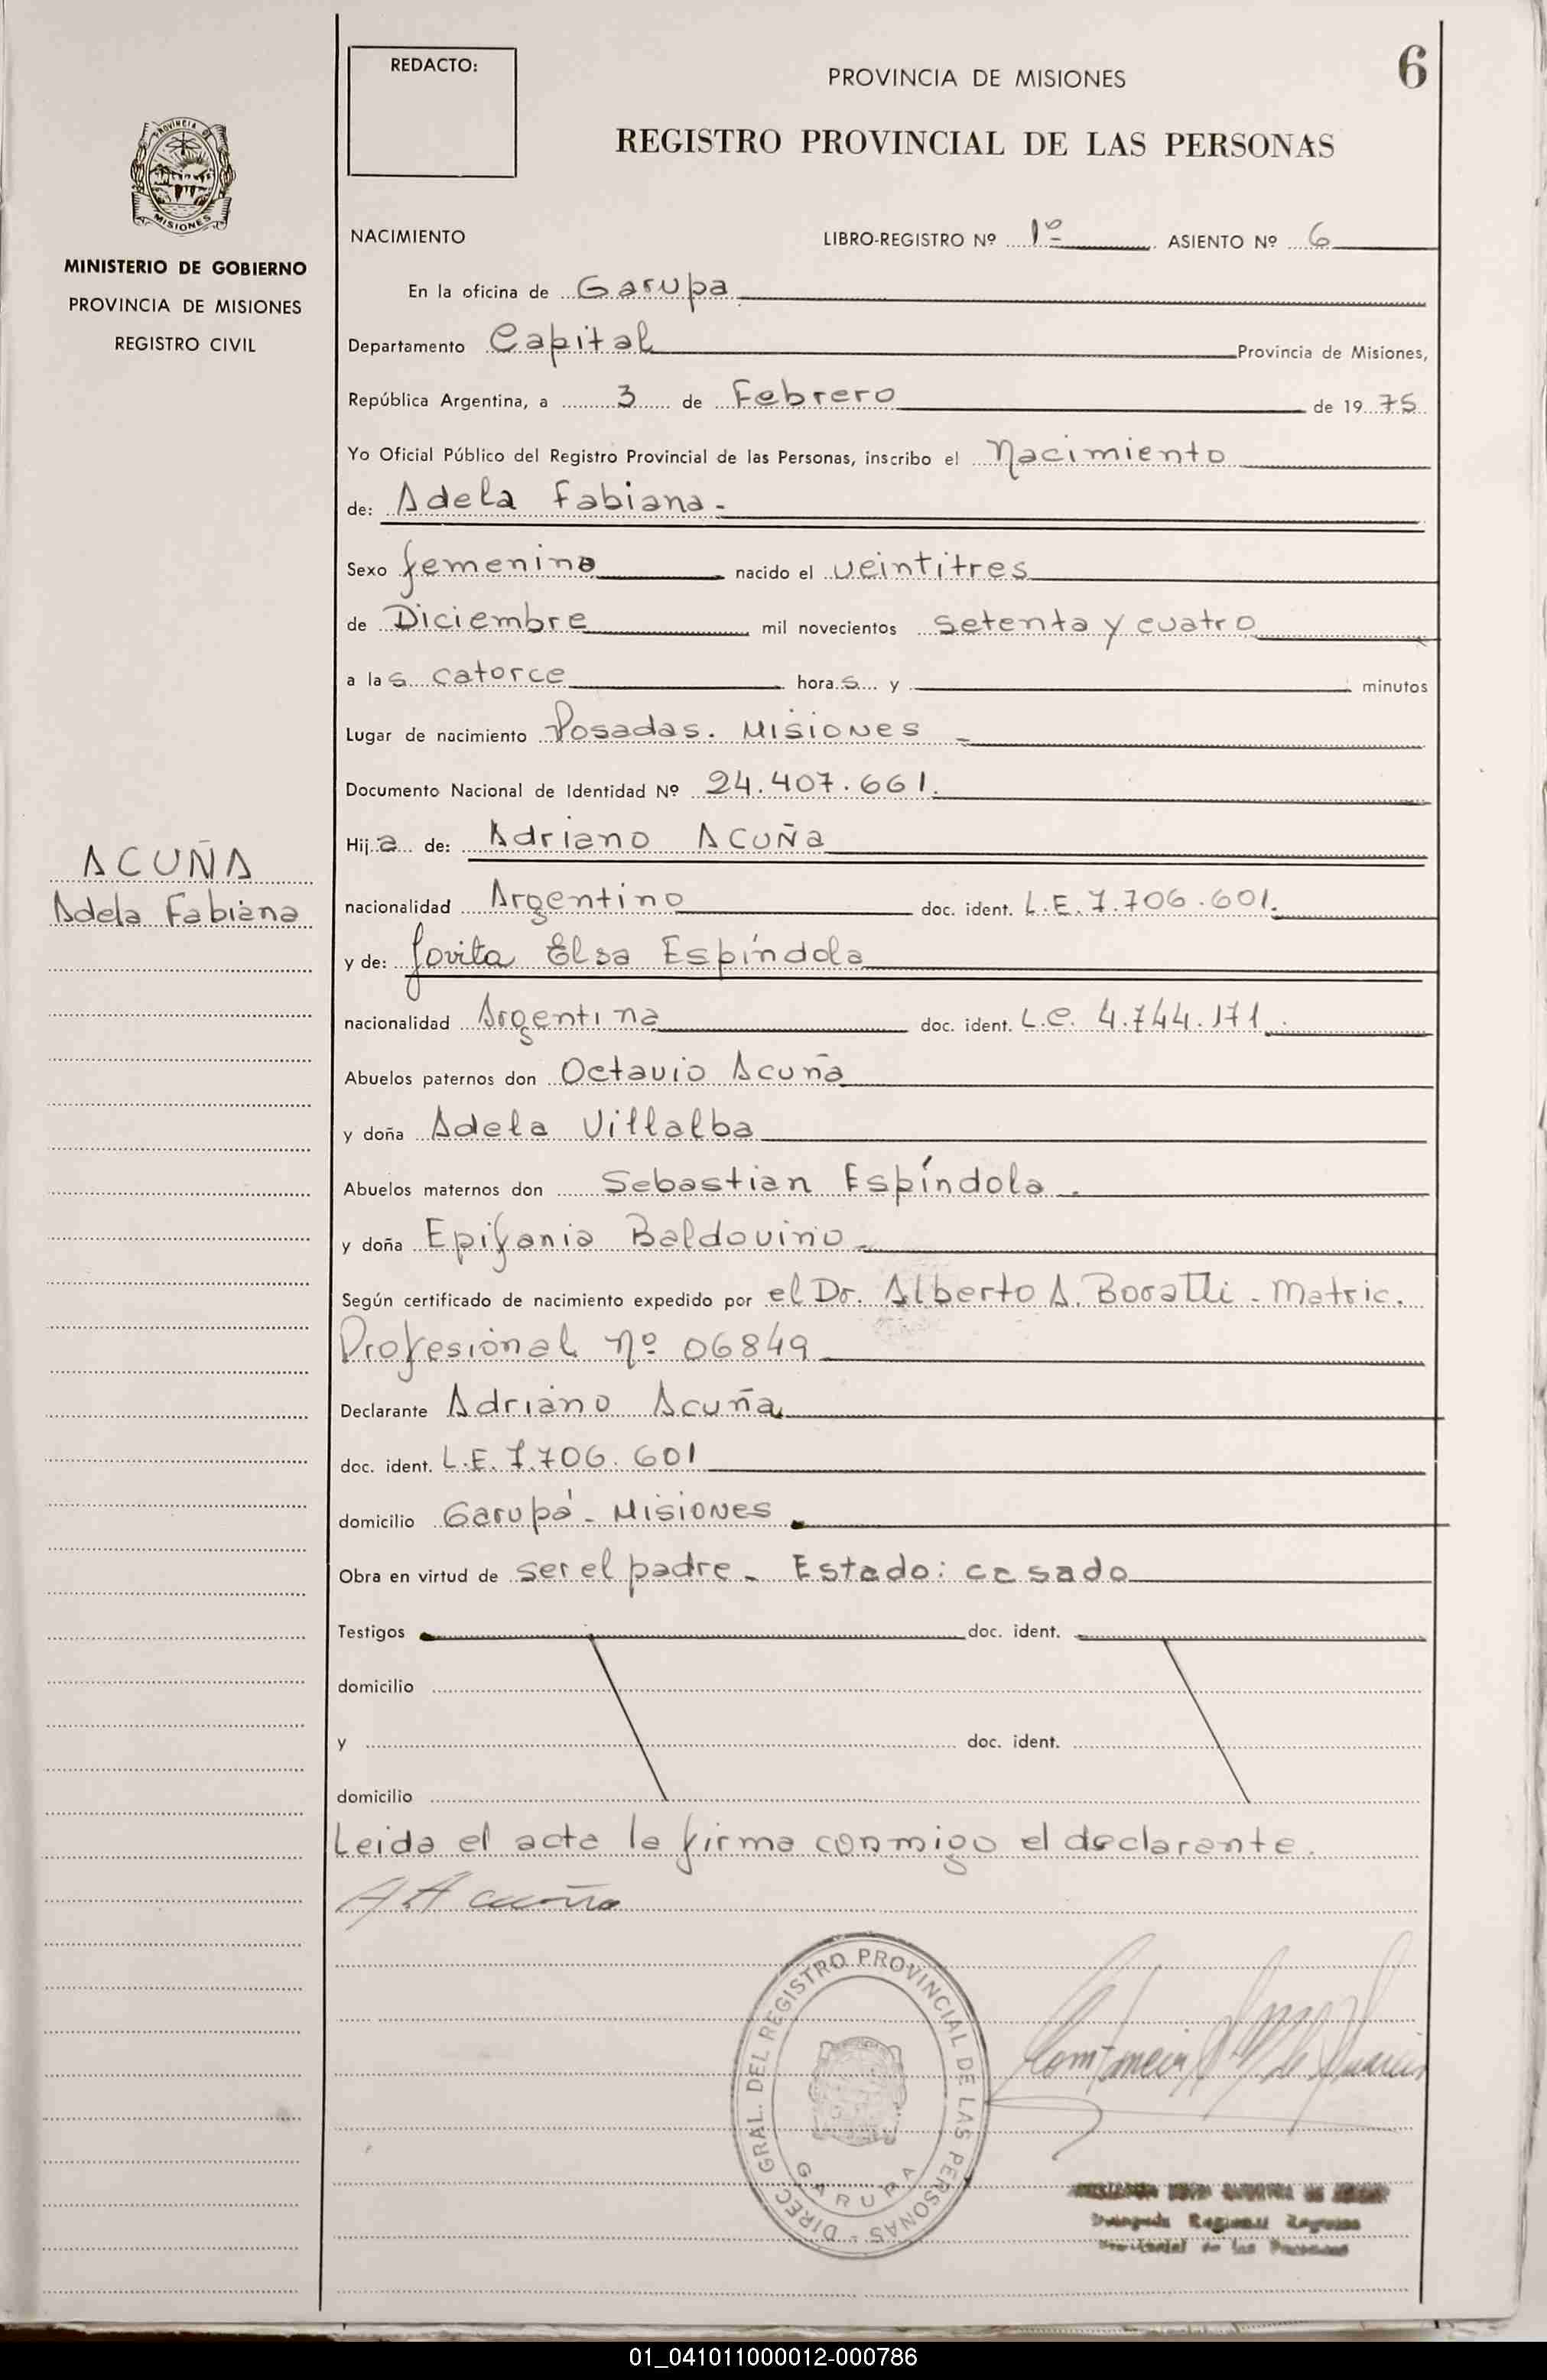 REDACTO:
PROVINCIA DE MISIONES
6
REGISTRO PROVINCIAL DE LAS PERSONAS
PROVINCIA DE
MISIONES
MINISTERIO DE GOBIERNO
PROVINCIA DE MISIONES
REGISTRO CIVIL
NACIMIENTO
LIBRO-REGISTRO Nº 1º ASIENTO Nº 6
En la oficina de Garupa
Departamento Capital Provincia de Misiones,
República Argentina, a 3 de Febrero de 1975
Yo Oficial Público del Registro Provincial de las Personas, inscribo el Nacimiento
de: Adela Fabiana.-
Sexo femenino nacido el veintitres
de Diciembre mil novecientos setenta y cuatro
a las catorce horas y minutos
Lugar de nacimiento Posadas. Misiones -
Documento Nacional de Identidad Nº 24.407.661.
ACUÑA
Adela Fabiana
Hija de: Adriano ACUÑA
nacionalidad Argentino doc. ident. L.E. 7.706.601.
y de: Jovita Elsa Espíndola
nacionalidad Argentina doc. ident. L.C. 4.744.171
Abuelos paternos don Octavio Acuña
y doña Adela Villalba
Abuelos maternos don Sebastian Espíndola.
y doña Epifania Baldovino
Según certificado de nacimiento expedido por el Dr. Alberto A. Boratti - Matric.
Profesional Nº 06849
Declarante Adriano Acuña
doc. ident. L.E. 7.706.601
domicilio Garupá - Misiones
Obra en virtud de ser el padre - Estado: casado
Testigos doc. ident.
domicilio
y doc. ident.
domicilio
Leida el acta la firma conmigo el declarante.
A Acuña
DIREC. GRAL. DEL REGISTRO PROVINCIAL DE LAS PERSONAS -
GARUPA
de las Personas
01_041011000012-000786